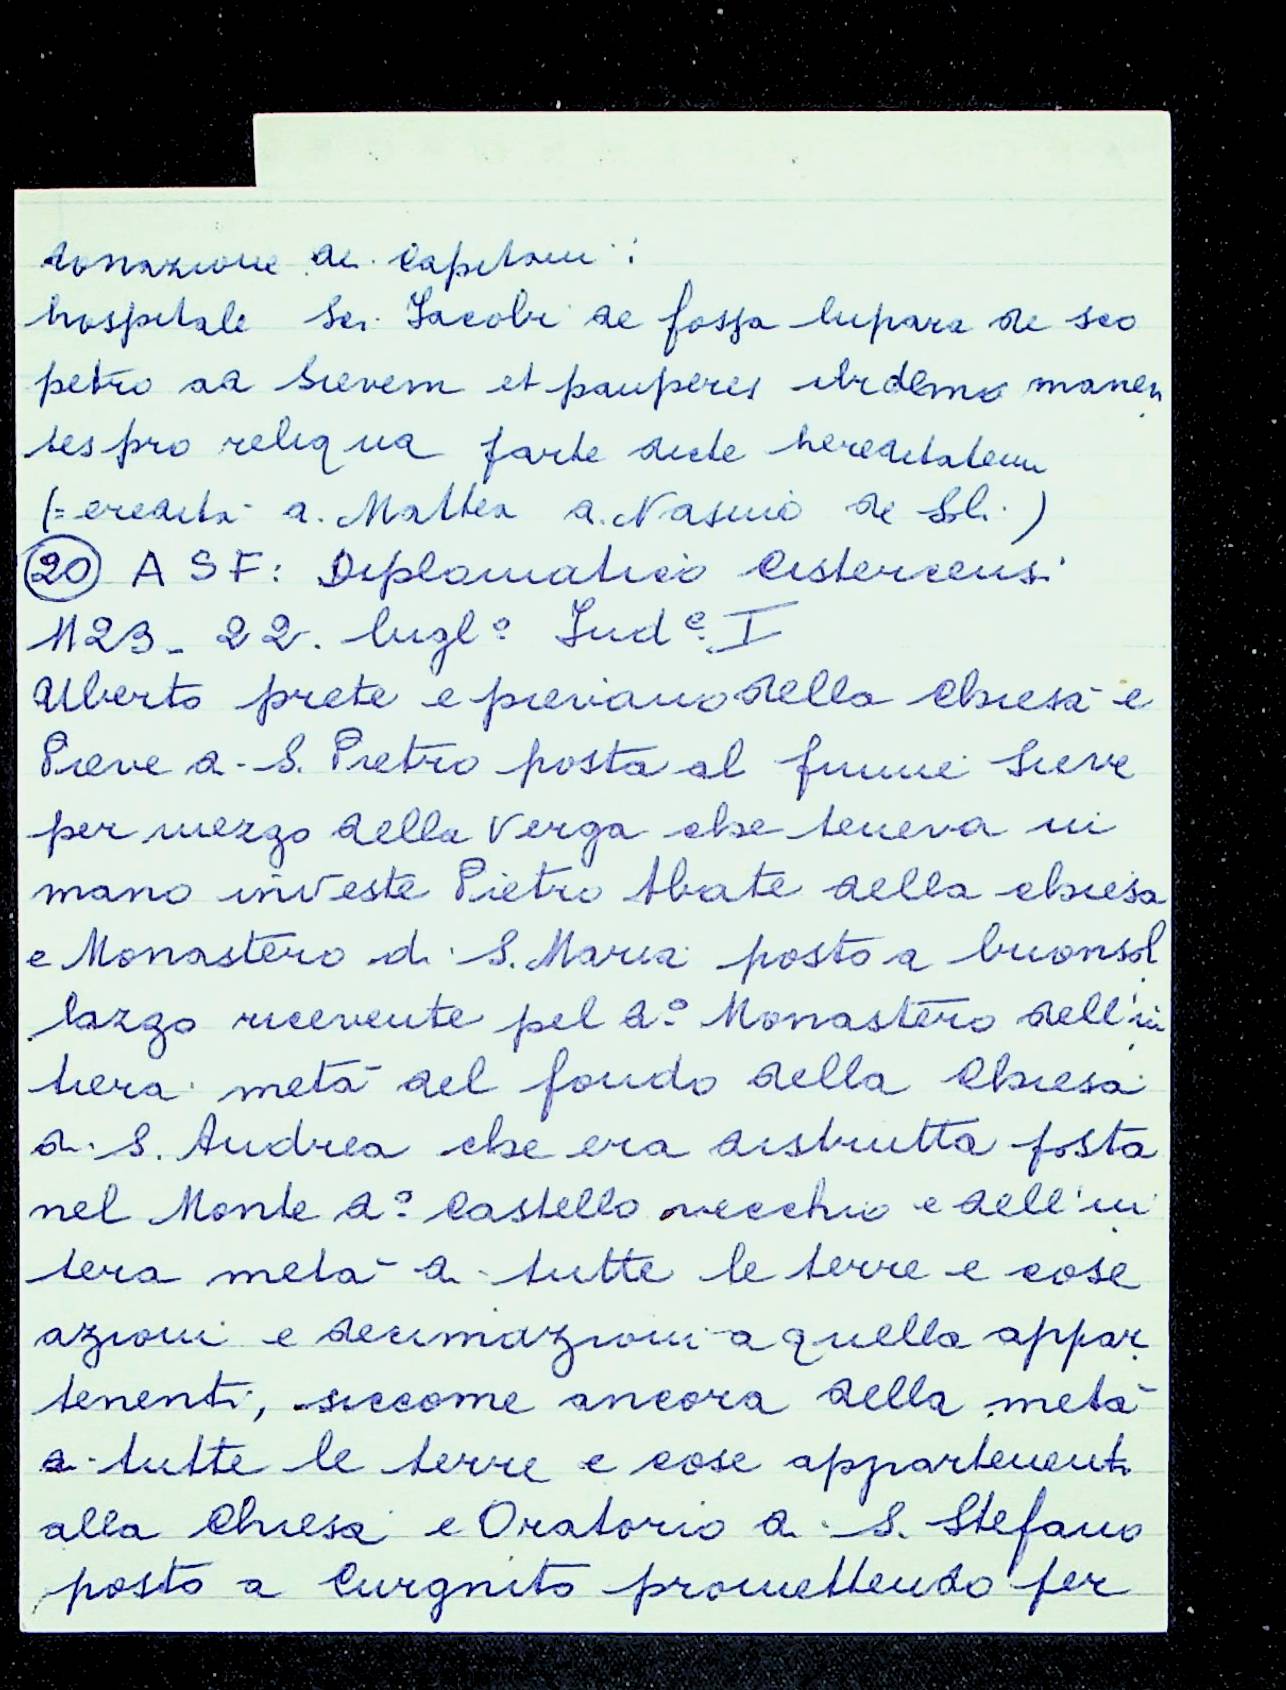 donazione dei Capitani:
hospitale Sci. Jacobi de fossa lupara de sco
petro ad Sievem et pauperes ibidemo manen
tes pro reliqua parte dicte hereditatem
(= eredità di Mattea di Nascio de Sli.)
20 ASF: Diplomatico Cistercensi
1123 - 22. lugl° Ind.e I
Uberto prete e pievano della Chiesa e
Pieve di S. Pietro posta al fiume Sieve
per mezzo della Verga che teneva in
mano investe Pietro Abate della chiesa
e Monastero di S. Maria posto a buonsol
lazzo ricevente pel d.° Monastero dell'in
tiera metà del fondo della Chiesa
di S. Andrea che era distrutta posta
nel Monte d.° Castello vecchio e dell'in
tera metà di tutte le terre e cose
azioni e decimazioni a quella appar
tenenti, siccome ancora della metà
di tutte le terre e cose appartenenti
alla Chiesa e Oratorio di S. Stefano
posto a Curgnito promettendo per